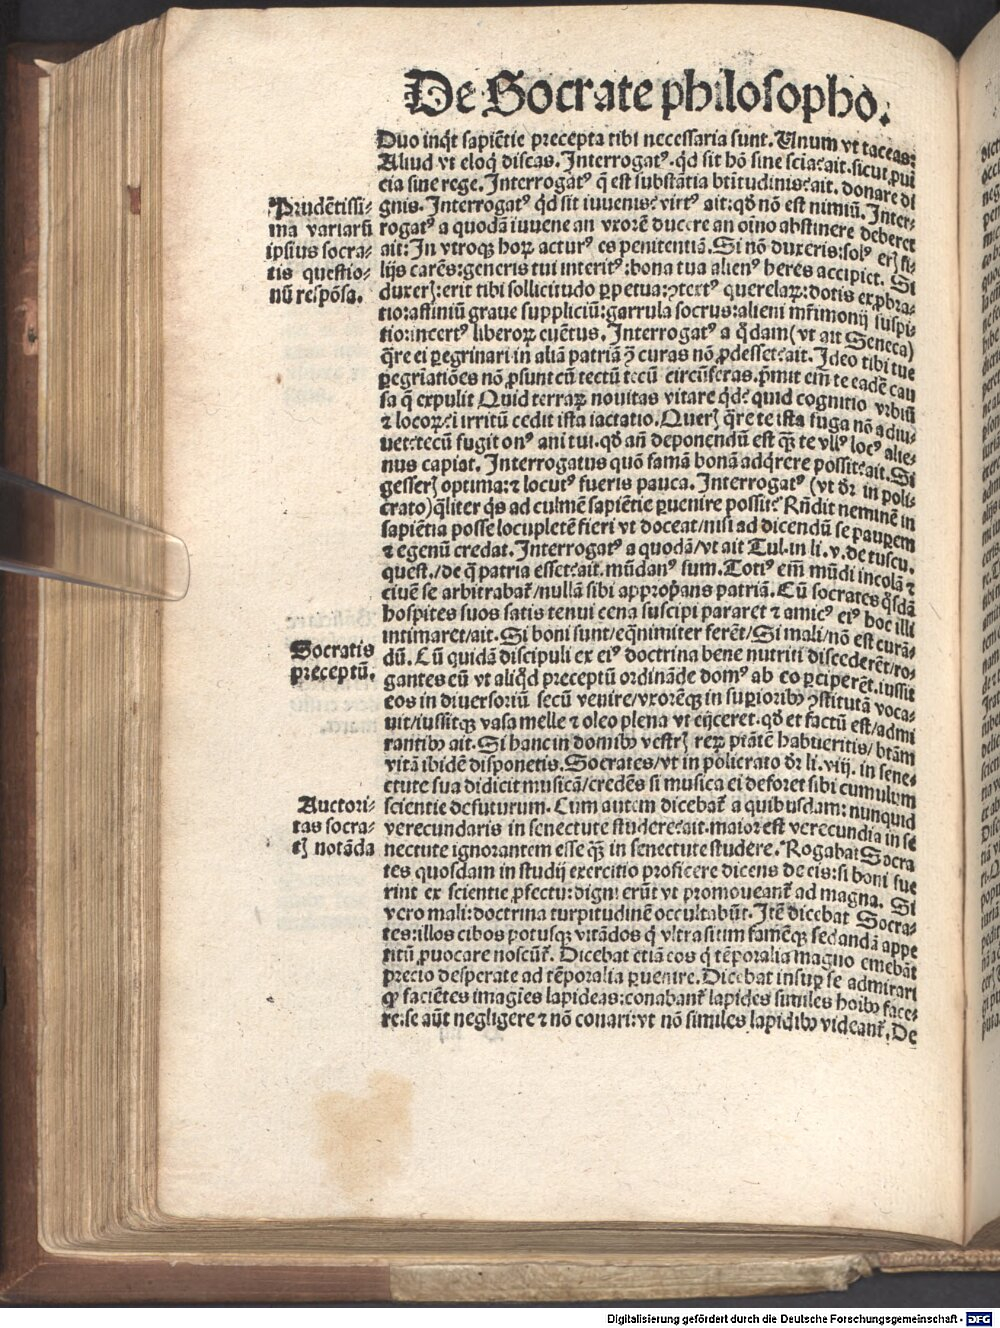 De Socrate philosopho.
Duo inqͥt sapiẽtie precepta tibi necessaria sunt. Unum vt taceas:
Aliud vt eloqͥ discas. Interrogatꝰ. qͥd sit hõ sine sciaͣ: ait. sicut ꝓuiͣ
cia sine rege. Interrogatꝰ q̃ est substãtia bt̃itudinis: ait. donare di
gnis. Interrogatꝰ qͥd sit iuuenis virtꝰ ait: qd̃ nõ est nimiũ. Inter-
rogatꝰ a quodã iuuene an vxorẽ ducere an oĩno abstinere deberet
ait: In vtroqꝫ hoꝝ acturꝰ es penitentiã. Si nõ duxeris: solꝰ erꝭ fi-
lijs carẽs: generis tui interitꝰ: bona tua alienꝰ heres accipiet. Si
duxerꝭ: erit tibi sollicitudo ꝑpetua: ꝯtextꝰ querelaꝝ: dotis exꝓbra-
tio: affiniũ graue suppliciũ: garrula socrus: alieni mr̃imonij suspi-
tio: incertꝰ liberoꝝ euẽtus. Interrogatꝰ a qͦdam (vt ait Seneca)
q̃re ei ꝑegrinari in aliã patriã ⁊ curas nõ ꝓdesset: ait. Ideo tibi tue
ꝑegriatiões nõ ꝓsunt cũ tectũ tecũ circũferas. p̃mit em̃ te eadẽ cau
sa q̃ expulit Quid terraꝝ nouitas vitare qͥd: quid cognitio vrbiũ
⁊ locoꝝ: ĩ irritũ cedit ista iactatio. Querꝭ q̃re te ista fuga nõ adiu-
uet: tecũ fugit onꝰ ani tui. qd̃ añ deponendũ est qͣꝫ te vllꝰ locꝰ alie-
nus capiat. Interrogatus quõ famã bonã adqͥrere possit: ait. Si
gesserꝭ optima: ⁊ locutꝰ fueris pauca. Interrogatꝰ (vt dr̃ in poli-
crato) qͣliter qͥs ad culmẽ sapiẽtie ꝑuenire possit: Rñdit neminẽ in
sapiẽtia posse locupletẽ fieri vt doceat / nisi ad dicendũ se pauꝑem
⁊ egenũ credat. Interrogatꝰ a quodã / vt ait Tul. in li. v. de tuscu.
quest. / de qͣ patria esset: ait. mũdanꝰ sum. Totiꝰ em̃ mũdi incolã ⁊
ciuẽ se arbitrabat᷑ / nullã sibi appropͥans patriã. Cũ socrates qͦsdã
hospites suos satis tenui cena suscipi pararet ⁊ amicꝰ eiꝰ hoc illi
intimaret / ait. Si boni sunt / eqͣnimiter ferẽt / Si mali / nõ est curã-
dũ. Cũ quidã discipuli ex eiꝰ doctrina bene nutriti discederẽt / ro-
gantes eũ vt aliqͥd preceptũ ordinãde domꝰ ab eo ꝑciperẽt. iussit
eos in diuersoriũ secũ venire / vxorẽqꝫ in suꝑioribꝰ ꝯstitutã voca-
uit / iussitqꝫ vasa melle ⁊ oleo plena vt eijceret. qd̃ et factũ est / admi
rantibꝰ ait. Si hanc in domibꝰ vestrꝭ reꝝ piãtẽ habueritis / btãm
vitã ibidẽ disponetis. Socrates / vt in policrato dr̃ li. viij. in sene-
ctute sua didicit musicã / credẽs si musica ei deforet sibi cumulum
scientie defuturum. Cum autem dicebat᷑ a quibusdam: nunquid
verecundaris in senectute studere: ait. maior est verecundia in se
nectute ignorantem esse qͣꝫ in senectute studere. Rogabat Socra
tes quosdam in studij exercitio proficere dicens de eis: si boni fue
rint ex scientie ꝓfectu: digni erũt vt promoueant᷑ ad magna. Si
vero mali: doctrina turpitudinẽ occultabũt. Itẽ dicebat Socra-
tes: illos cibos potusqꝫ vitãdos qͥ vltra sitim famẽqꝫ sedandã appe
titũ ꝓuocare noscũt᷑. Dicebat etiã eos qͥ tẽporalia magno emebãt
precio desperate ad tẽporalia ꝑuenire. Dicebat insuꝑ se admirari
ꝙ faciẽtes imagies lapideas: conabant᷑ lapides similes hoibꝰ face-
re: se aũt negligere ⁊ nõ conari: vt nõ similes lapidibꝰ videant᷑. De
Prudẽtissi-
ma variarũ
ipsius socra-
tis questio-
nũ respõsa.
Socratis
preceptũ.
Auctori-
tas socra-
tꝭ notãda
Digitalisierung gefördert durch die Deutsche Forschungsgemeinschaft - DFG